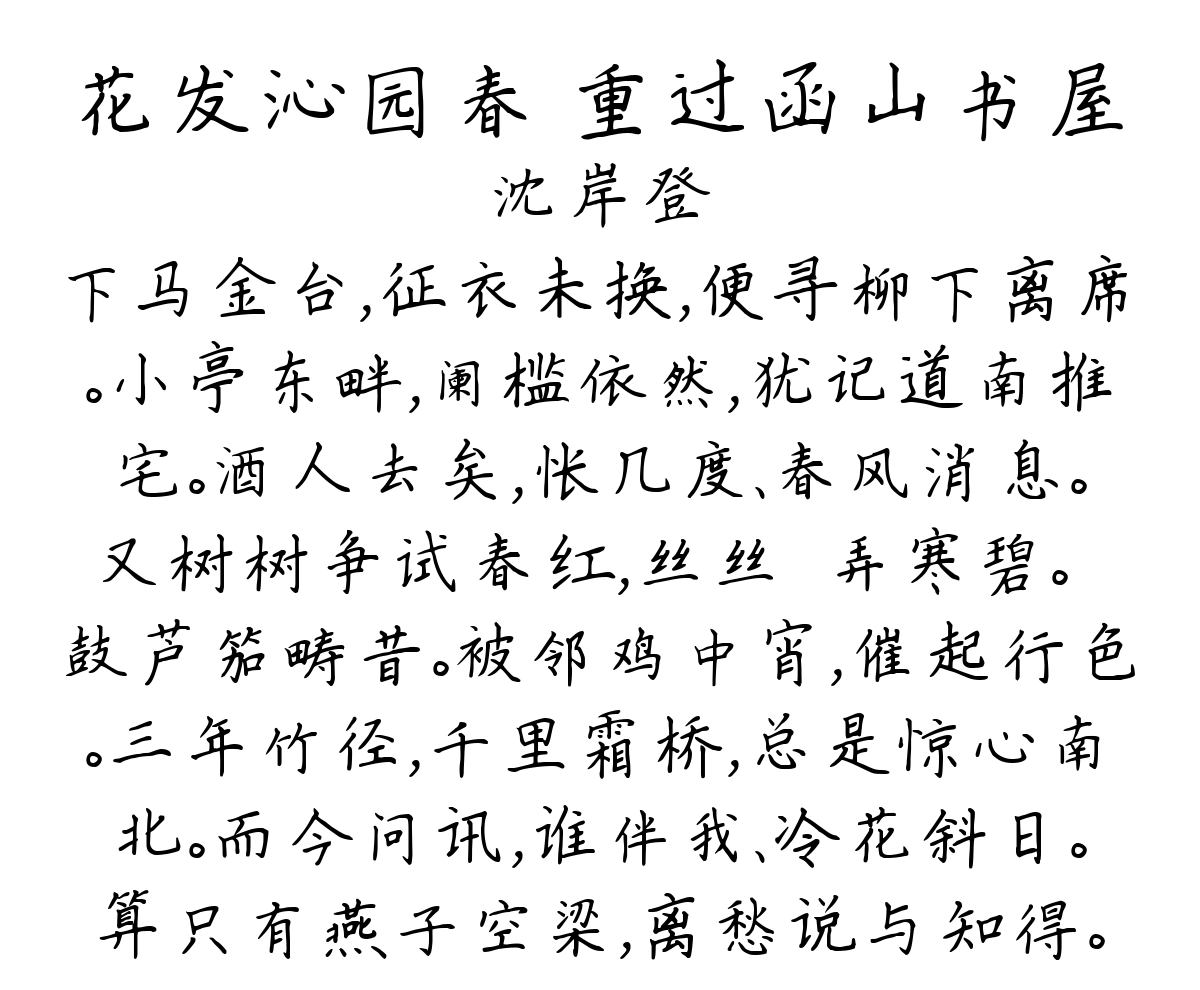 花发沁园春 重过函山书屋
沈岸登
下马金台,征衣未换,便寻柳下离席
。小亭东畔,阑槛依然,犹记道南推
宅。酒人去矣,怅几度、春风消息。
又树树争试春红,丝丝 弄寒碧。
鼓芦笳畴昔。被邻鸡中宵,催起行色
。三年竹径,千里霜桥,总是惊心南
北。而今问讯,谁伴我、冷花斜日。
算只有燕子空梁,离愁说与知得。